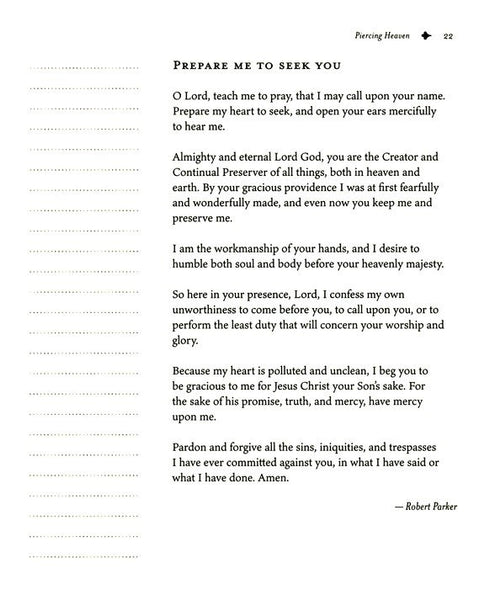 Piercing Heaven ✦ 22
PREPARE ME TO SEEK YOU
O Lord, teach me to pray, that I may call upon your name.
Prepare my heart to seek, and open your ears mercifully
to hear me.
Almighty and eternal Lord God, you are the Creator and
Continual Preserver of all things, both in heaven and
earth. By your gracious providence I was at first fearfully
and wonderfully made, and even now you keep me and
preserve me.
I am the workmanship of your hands, and I desire to
humble both soul and body before your heavenly majesty.
So here in your presence, Lord, I confess my own
unworthiness to come before you, to call upon you, or to
perform the least duty that will concern your worship and
glory.
Because my heart is polluted and unclean, I beg you to
be gracious to me for Jesus Christ your Son's sake. For
the sake of his promise, truth, and mercy, have mercy
upon me.
Pardon and forgive all the sins, iniquities, and trespasses
I have ever committed against you, in what I have said or
what I have done. Amen.
— Robert Parker